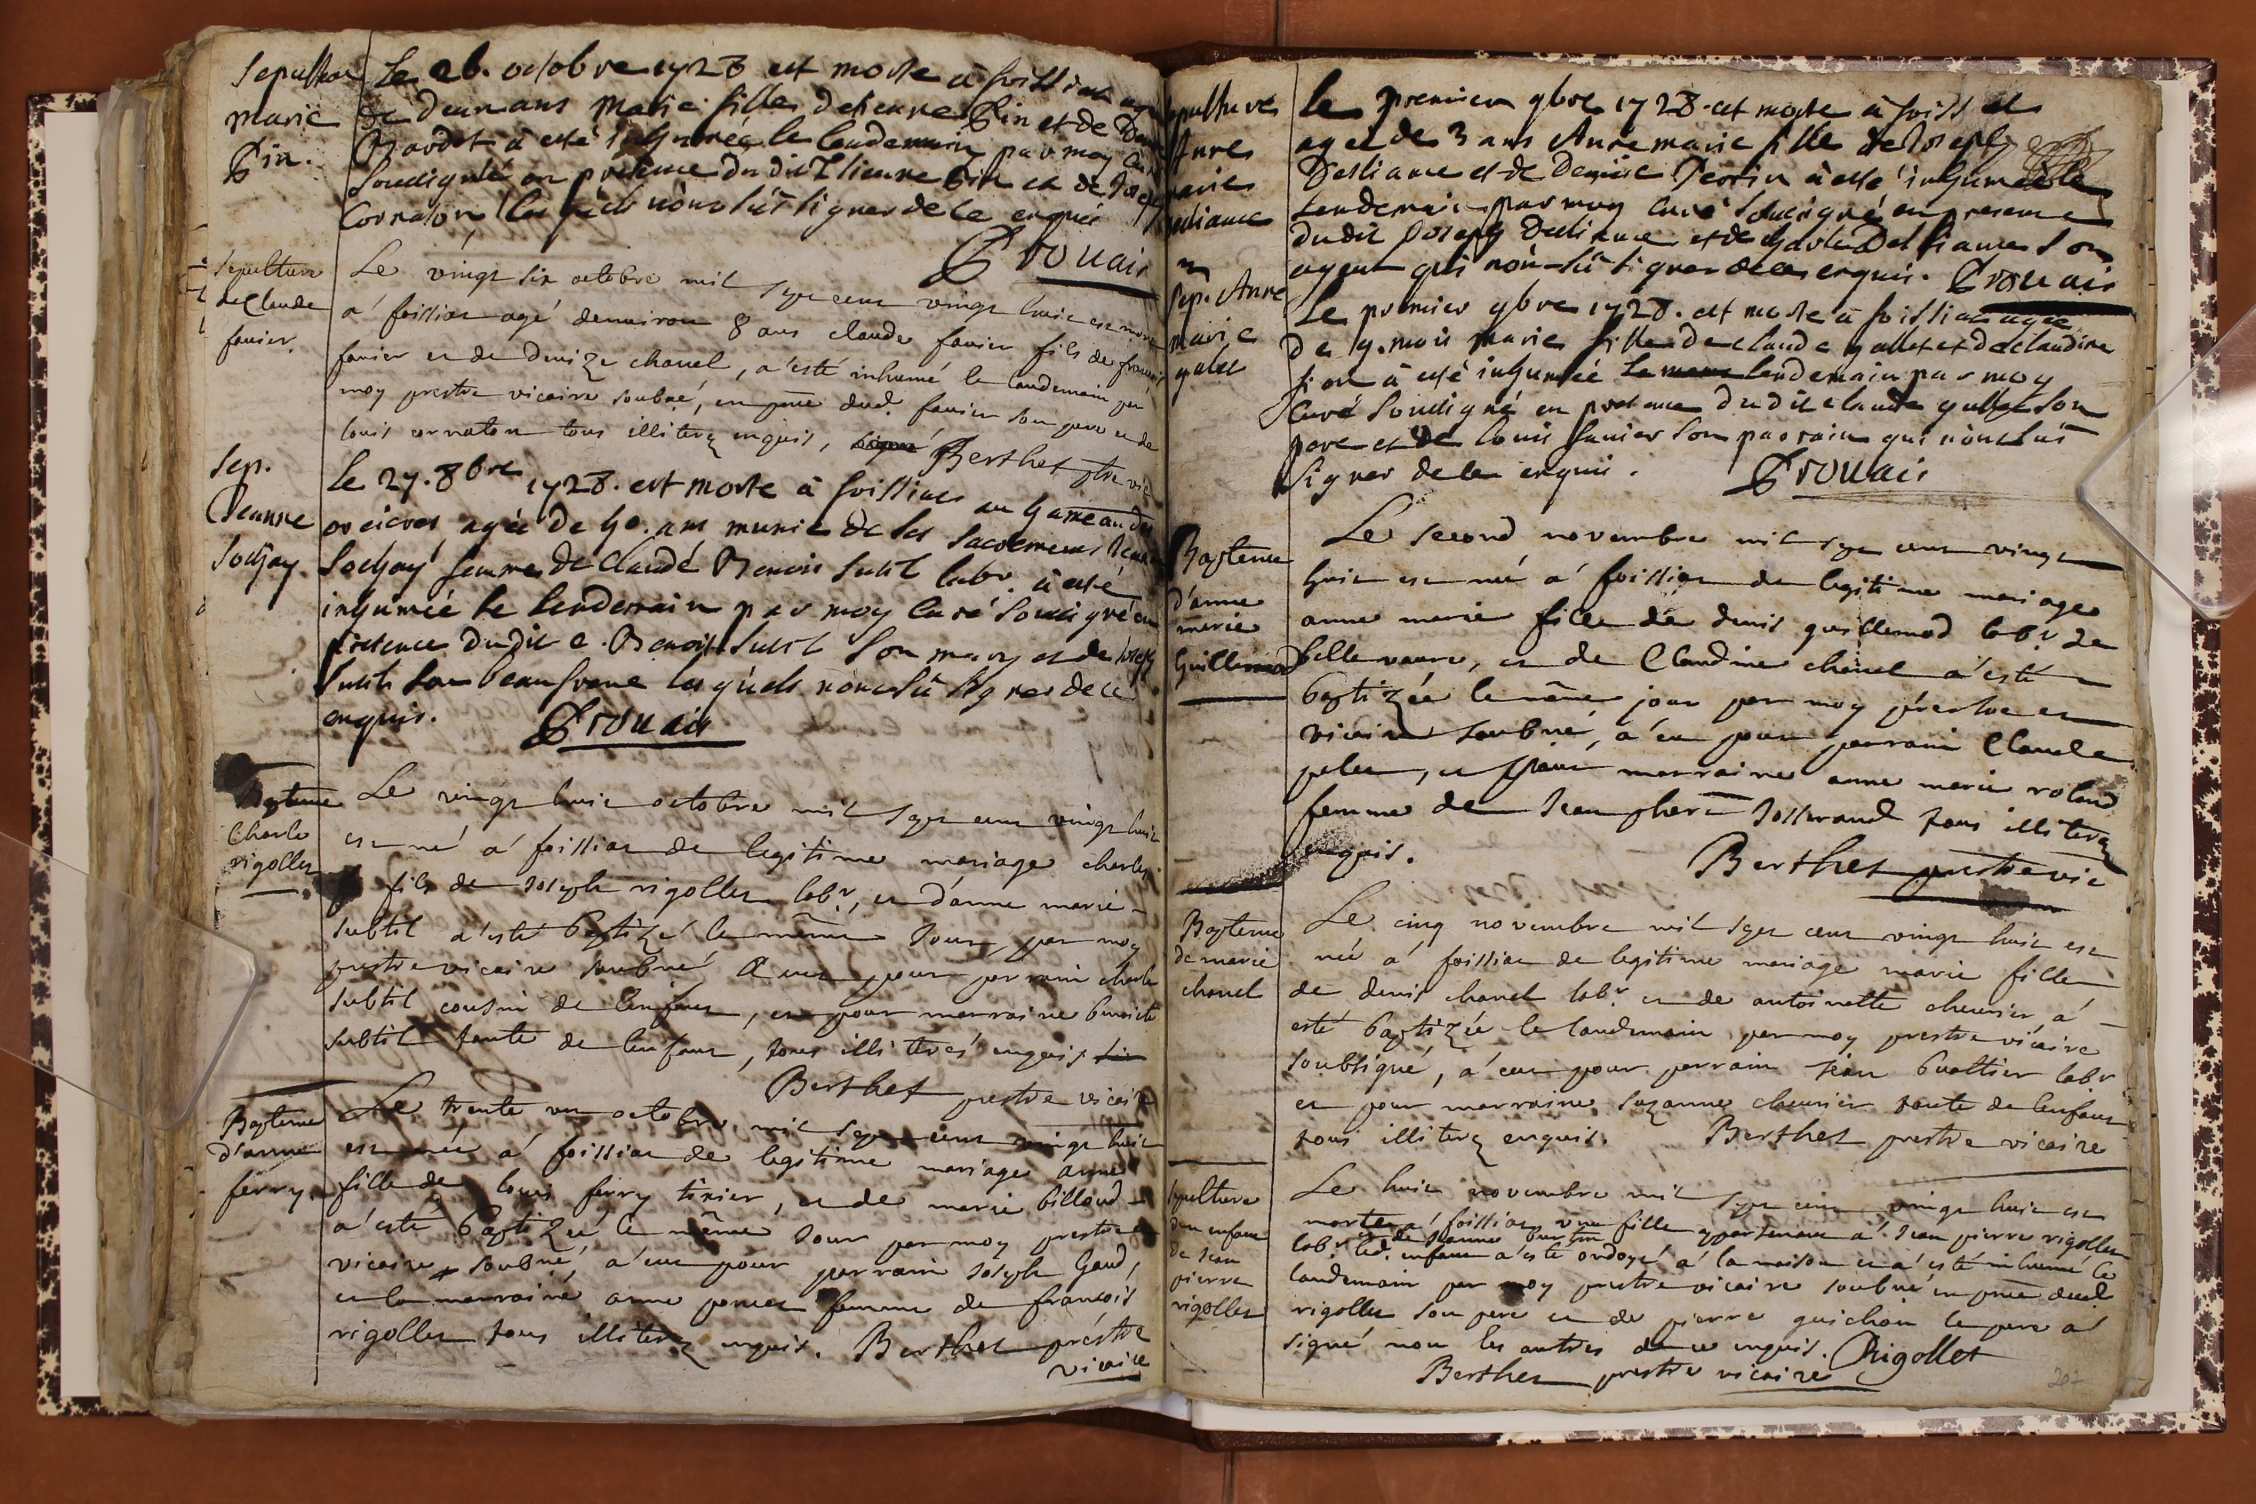 Sepulture
marie
Pin.
Le 26. octobre 1728 est morte à foissiat agée
de deux ans Marie fille detienne Pin et de
Bardet à esté inhumée le lendemain par moy curé
soussigné en présence du dit Etienne Pin et de Joseph
Cornaton lesquels n'ont sût signer de ce enquis
Prouais
Sepulture
de Claude
favier.
Le vingt six octobre mil sept cent vingt huit est mort
a' foissiat agé denviron 8 ans claude favier fils de francois
favier et de Denize chanel, a'esté inhumé le landemain par
moy prestre vicaire soubné, en pnce dud. favier son pere et de
louis cornaton tous illiterez enquis, Berthet ptre vic
Sep.
Jeanne
Sochay
Le 27. 8bre 1728. est morte à foissiat au hameau des
agée de 40. ans munie de ses sacremens Jeanne
Sochay femme de Claude Benoit Subtl labr. à esté
inhumée le lendemain par moy curé soussigné en
présence du dit C. Benoit Subtl son mary et de Joseph
Subtl son beaufrere lesquels n'ont sû signer de ce
enquis. Prouais
Bapteme
Charle
rigollet
Le vingt huit octobre mil sept cent vingt huit
est né a' foissiat de legitime mariage charles
fils de Joseph rigollet labr., et d'anne marie
subtil a'esté baptizé le même Jour par moy
prestre vicaire soubné A eut pour parrain charle
subtil cousin de lenfant, et pour marraine benoite
subtil tante de lenfant, tous illiterés enquis
Berthet prestre vicaire
Bapteme
d'anne
ferry
Le trente un octobre mil sept cent vingt huit
est née a' foissiat de legitime mariage anne
fille de louis ferry tixier, et de marie billoud
a'esté baptizée le même Jour par moy prestre
vicaire soubné, a'eut pour parrain Joseph Gaud,
et la marraine anne poncet femme de francois
rigollet tous illiterez enquis. Berthet prestre
vicaire
sepulture
Anne
marie
Desliance
le premier 9bre 1728. est morte à foissiat
agée de 3 ans Anne marie fille de Joseph
Desliance et de Denise Perrin à esté inhumée le
lendemain par moy curé soussigné en presence
du dit Joseph Desliance et de Charle Desliance son
ayeul qui n'ont sû signer de ce enquis. Prouais
Sep. Anne
marie
galet
Le premier 9bre 1728. est morte à foissiat agée
de 9. mois marie fille de claude gallet et de claudine
à esté inhumée le lendemain par moy
Curé soussigné en presence du dit claude gallet son
pere et de louis favier son parrain qui n'ont sût
signer de ce enquis. Prouais
Bapteme
d'anne
marie
Guillemod
Le second novembre mil sept cent vingt
huit est née a' foissiat de legitime mariage
anne marie fille de denis guillemod labr. de
bellevavre, et de Claudine chanel a'esté
baptizée le même jour par moy prestre et
vicaire soubné, a'eut pour parrain Claude
, et pour marraine anne marie roland
femme de Jean phert Josserand tous illiterez
enquis. Berthet prestre vic
Bapteme
de marie
chanel
Le cinq novembre mil sept cent vingt huit est
née a' foissiat de legitime mariage marie fille
de denis chanel labr. et de antoinette chevrier a'
esté baptizée le landemain par moy prestre vicaire
soubsigné, a'eut pour parrain Jean buattier labr
et pour marraine suzanne chevrier tante de lenfant
tous illiterez enquis. Berthet prestre vicaire
sepulture
d'un enfant
de Jean
pierre
rigollet
Le huit novembre mil sept cent vingt huit est
morte a' foissiat une fille appartenant a' Jean pierre rigollet
labr. et de Jeanne led. enfant a'esté ondoyé a' la maison et a'esté inhumé le
landemain par moy prestre vicaire soubné en pnce dud.
rigollet son pere et de pierre guichon le pere a'
signé non les autres de ce enquis. Rigollet
Berthet prestre vicaire
207